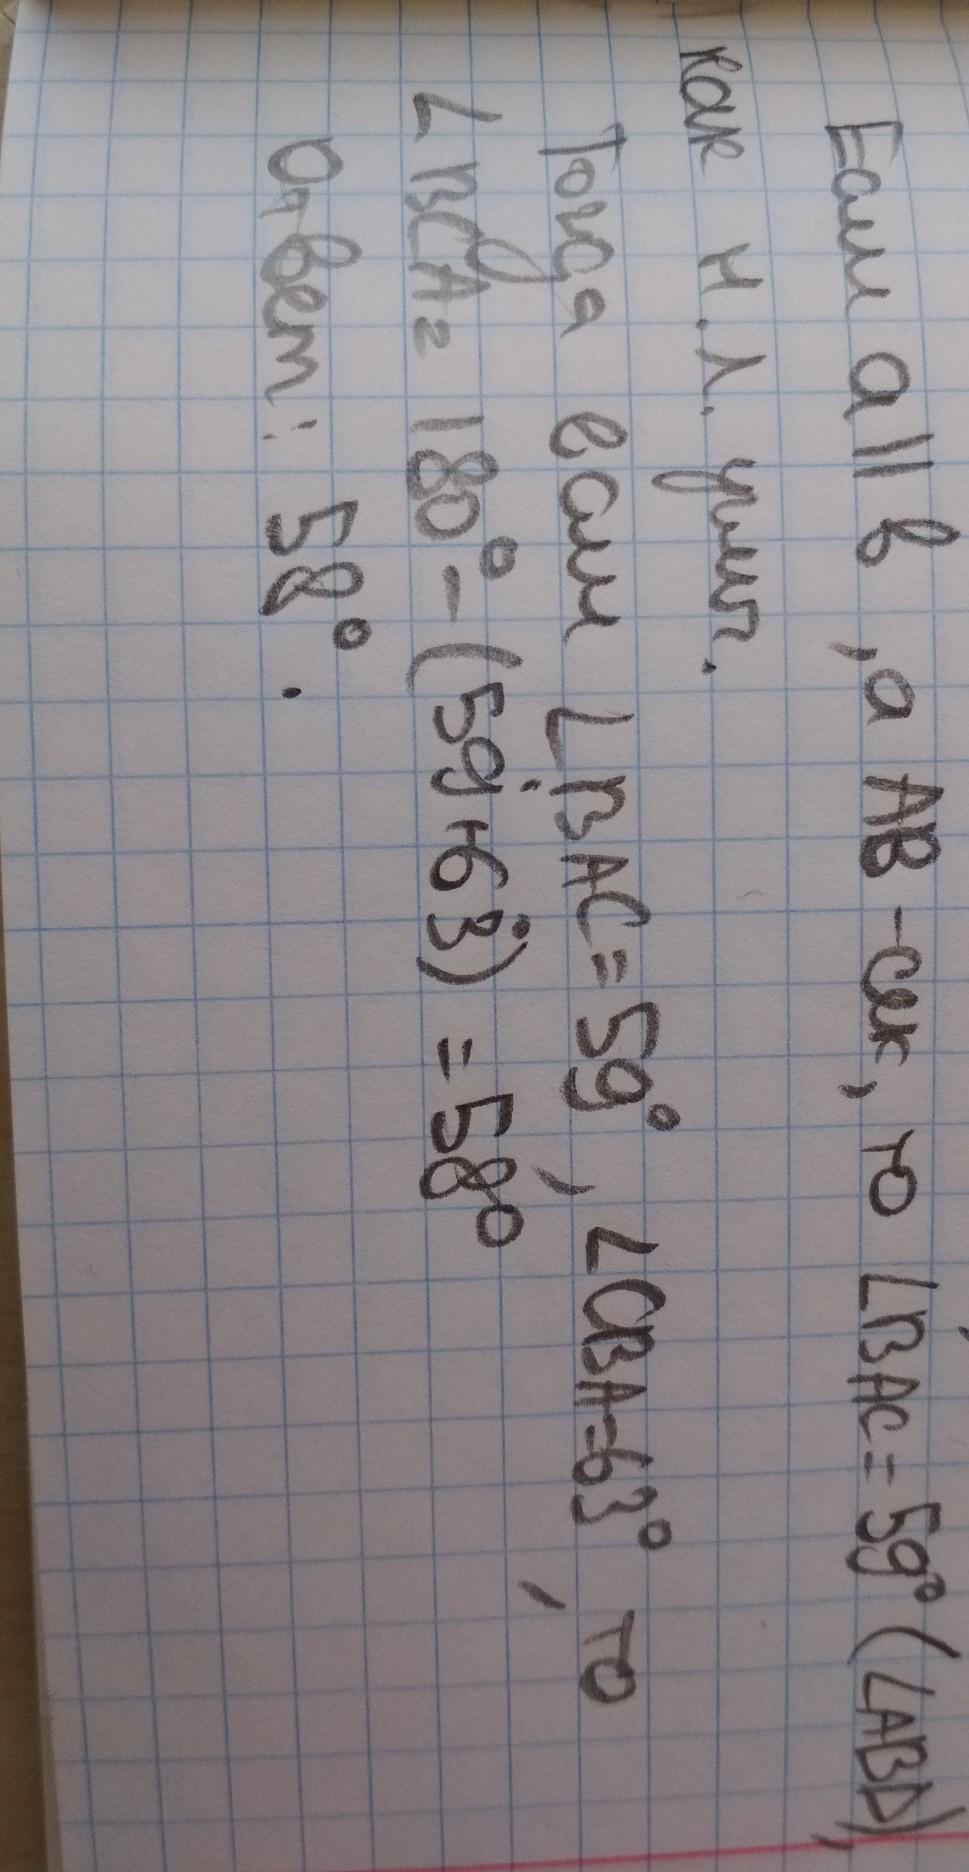 Если a || b, а AB - сек, то ∠BAC = 59° (∠ABD),
как н.л. углы.
Тогда если ∠BAC = 59°, ∠CBA = 63°, то
∠BCA = 180° - (59°+63°) = 58°
Ответ: 58°.